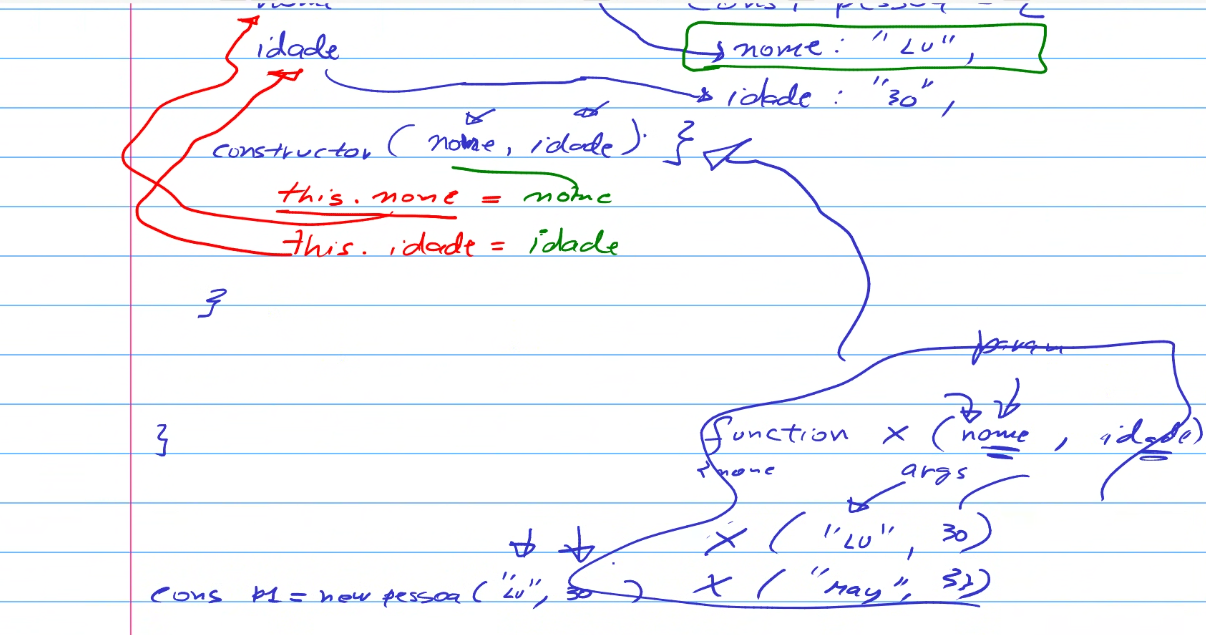 nome const pessoa = {
idade nome: "LU",
idade : "30",
constructor (nome, idade). }
this.nome = nome
this.idade = idade
}
param
} function x (nome, idade)
{nome args
x ("LU", 30)
cons p1 = new pessoa ("LU", 30 ) x ("May", 32)